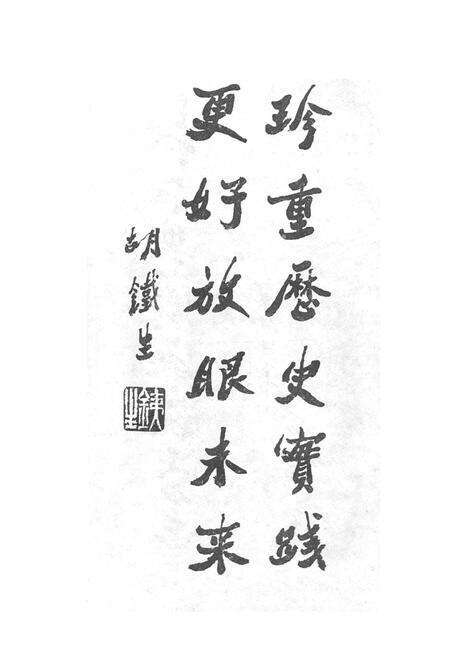 珍重歷史實践
更好放眼未来
胡鐵生
鉄生